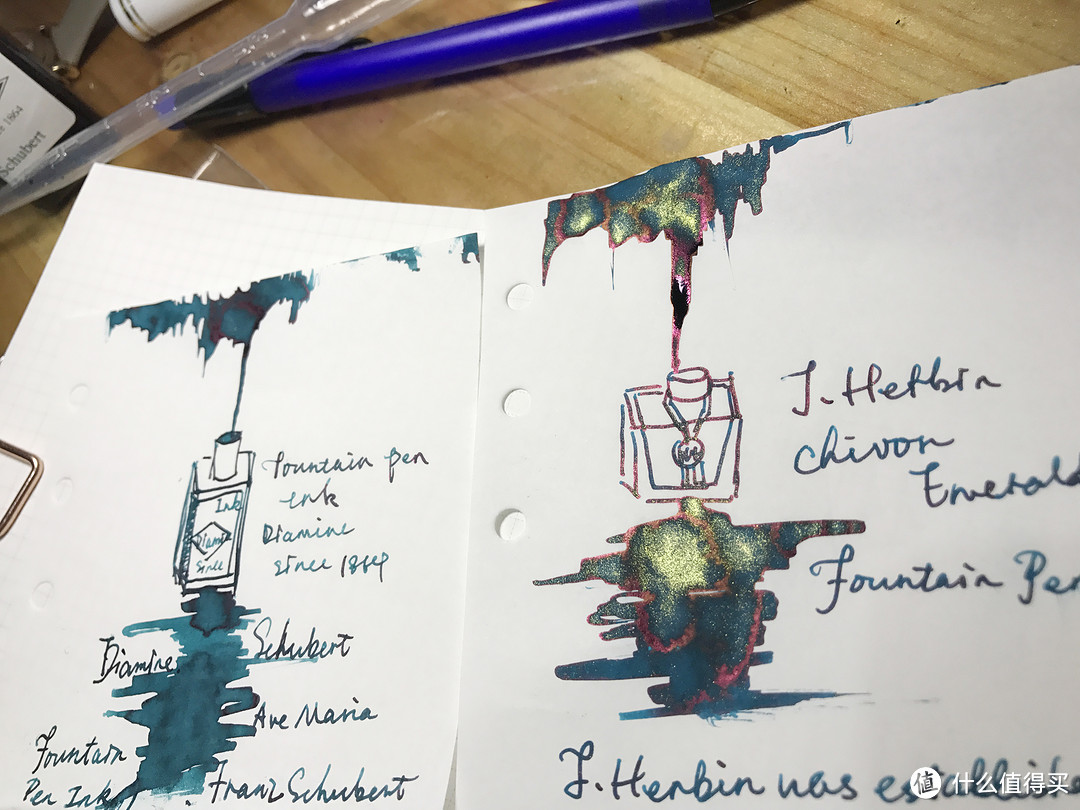 1864
Schubert
Fountain pen
ink
Diamine
since 1864
Ink
Diami
Since
Diamine
Schubert
Ave Maria
Fountain
Pen Ink
Franz Schubert
J. Herbin
Chivor
Emerald
Fountain Pen
J. Herbin was establishe
值 什么值得买